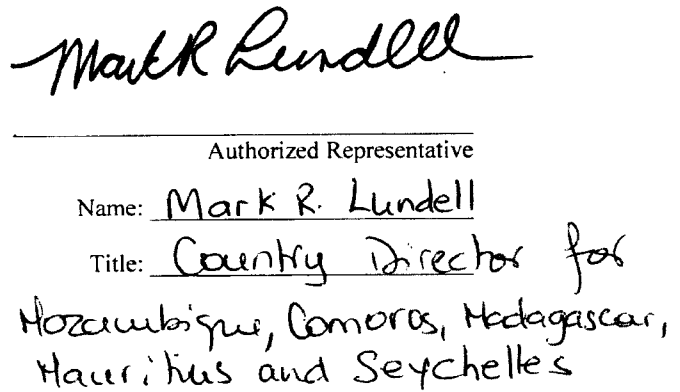 Mark R Lundell
Authorized Representative
Name: Mark R. Lundell
Title: Country Director for
Mozambique, Comoros, Madagascar,
Mauritius and Seychelles